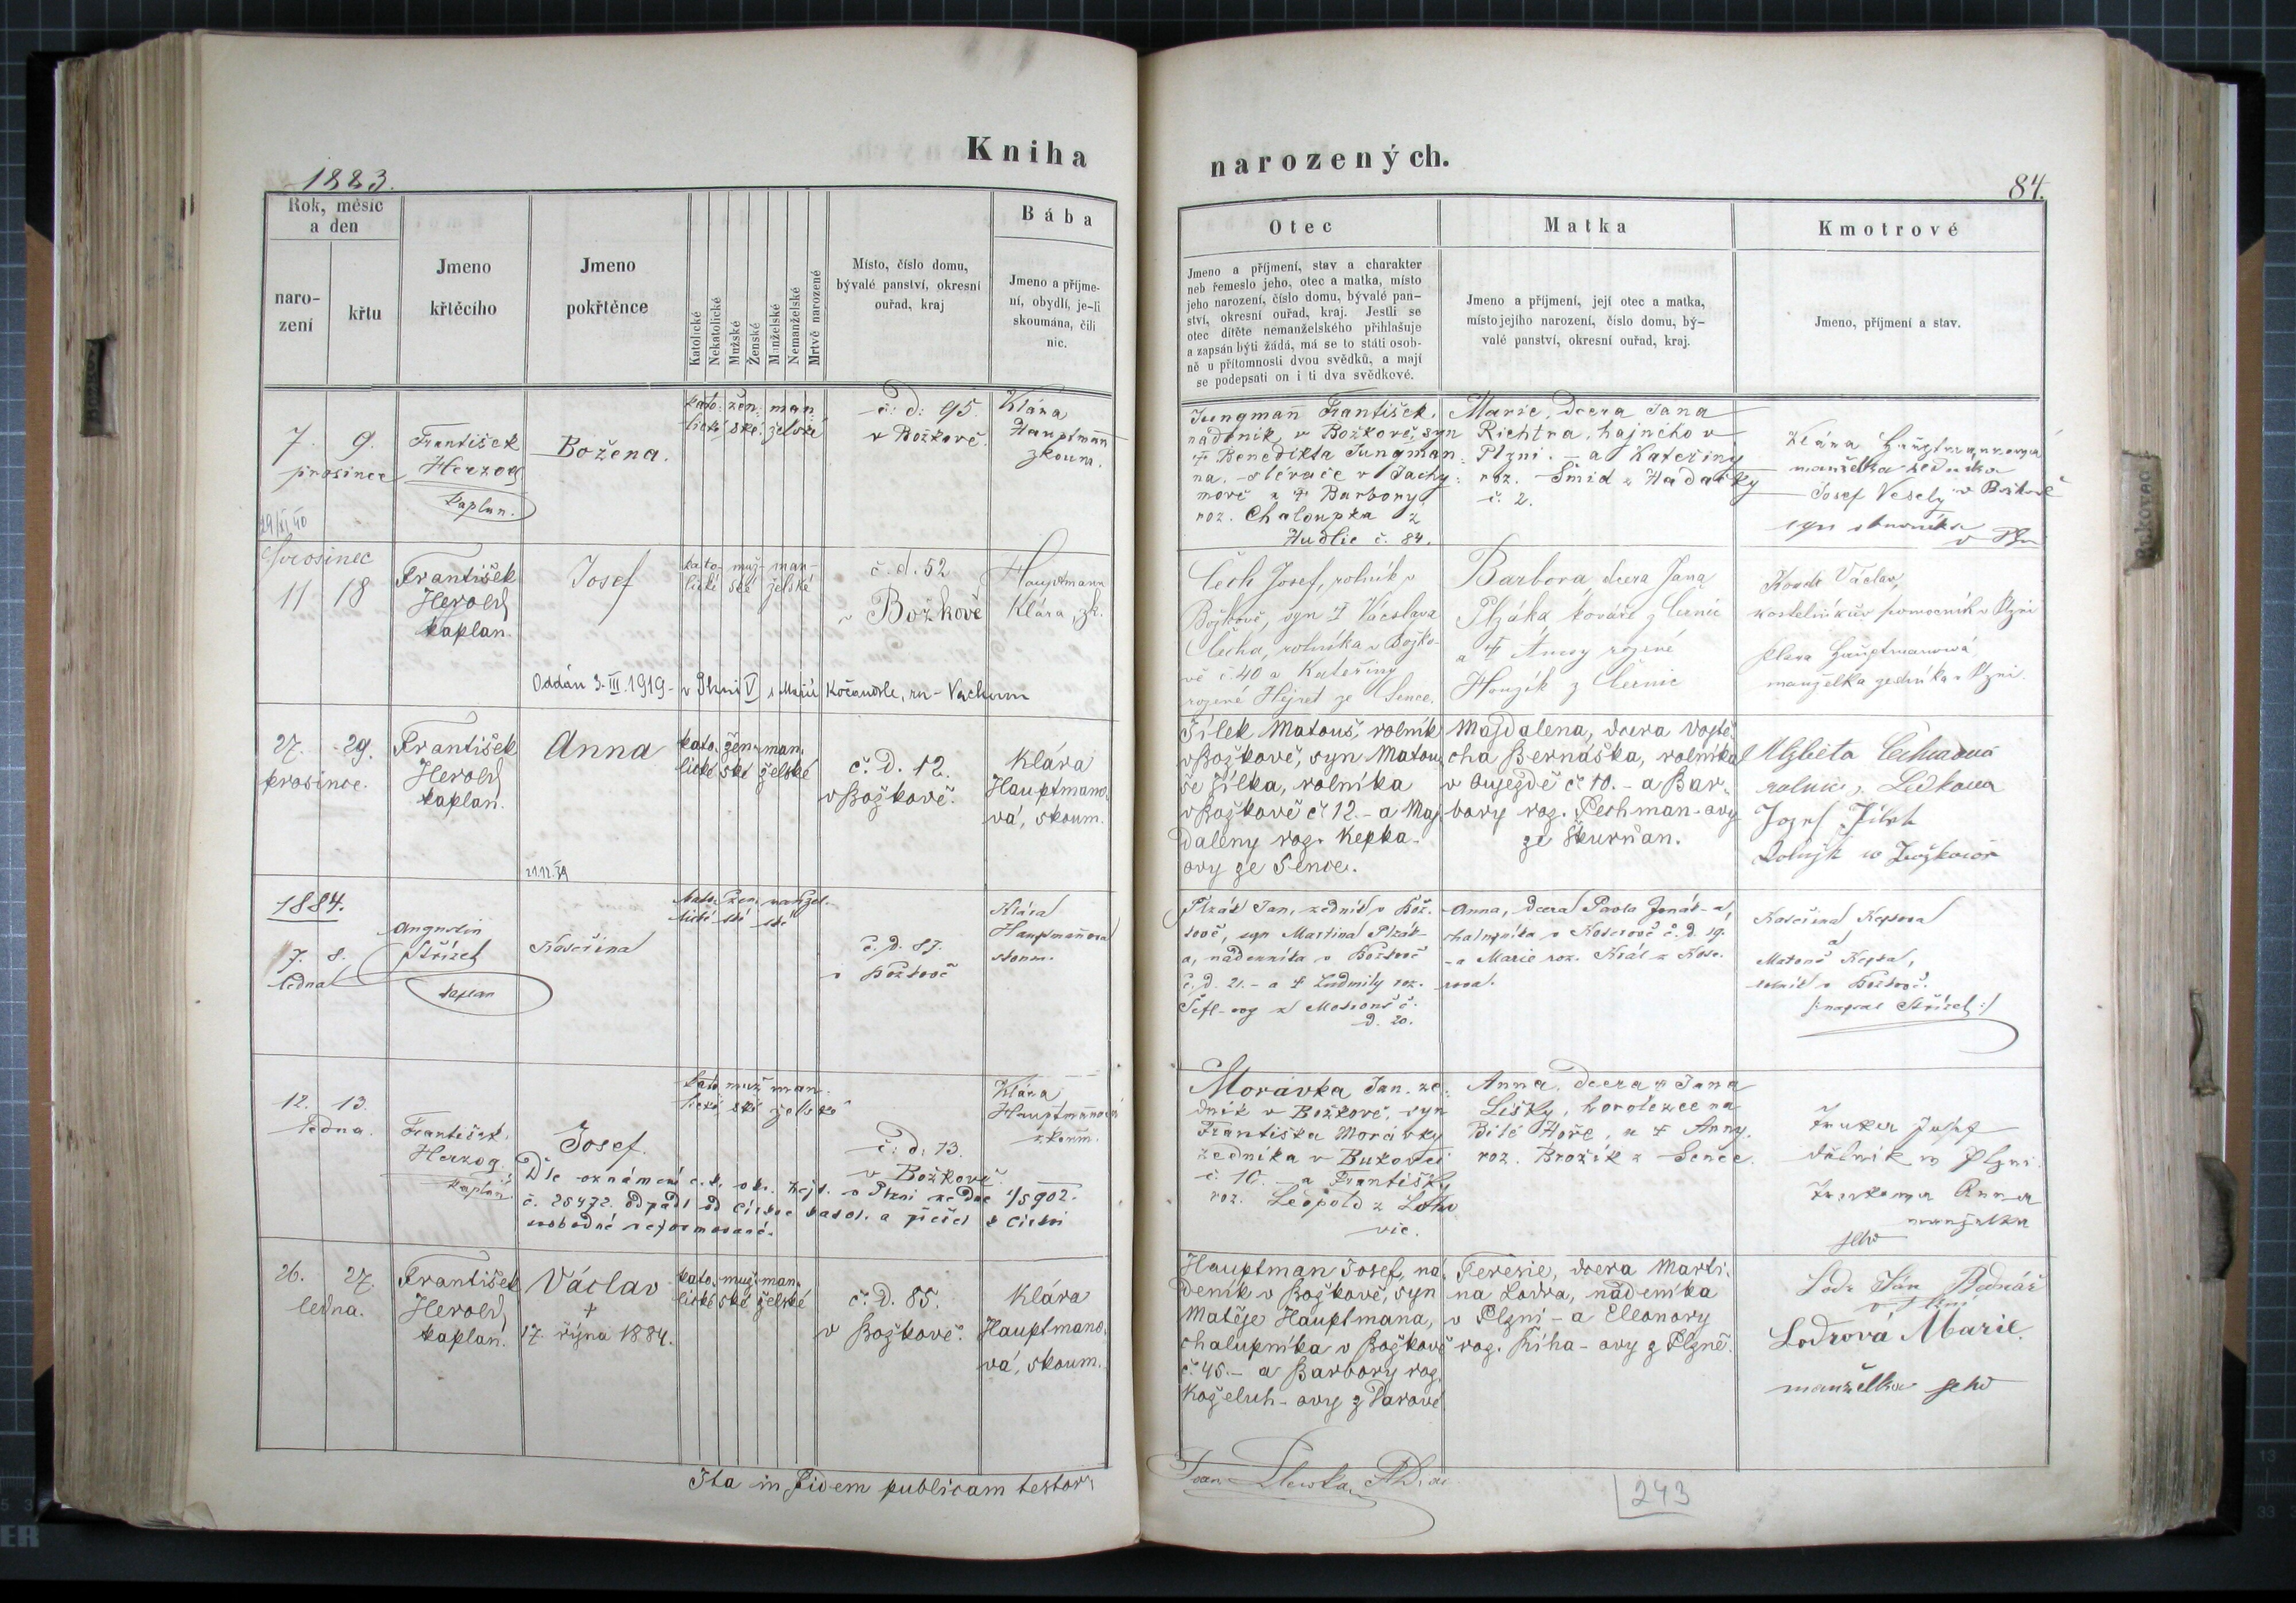 Kniha
narozených.
1883.
84.
Rok, měsíc
a den
naro-
zení
křtu
Jmeno
křtěcího
Jmeno
pokřtěnce
Katolické
Nekatolické
Mužské
Ženské
Manželské
Nemanželské
Mrtvě narozené
Místo, číslo domu,
bývalé panství, okresní
ouřad, kraj
Bába
Jmeno a příjme-
ní, obydlí, je-li
skoumána, čili
nic.
Otec
Jmeno a příjmení, stav a charakter
neb řemeslo jeho, otec a matka, místo
jeho narození, číslo domu, bývalé pan-
ství, okresní ouřad, kraj. Jestli se
otec dítěte nemanželského přihlašuje
a zapsán býti žádá, má se to státi osob-
ně u přítomnosti dvou svědků, a mají
se podepsati on i ti dva svědkové.
Matka
Jmeno a příjmení, její otec a matka,
místo jejího narození, číslo domu, bý-
valé panství, okresní ouřad, kraj.
Kmotrové
Jmeno, příjmení a stav.
7. 9.
prosince
František
Herzog
kaplan.
Božena.
kato- žen- man-
lické ské želské
č. d. 95
v Božkově.
Klára
Hauptmann
zkoum.
Jungmann František,
nádeník v Božkově, syn
† Benedikta Jungman-
na slévače v Jáchy-
mově a † Barbory
roz. Chaloupka z
Hudlic č. 84.
Marie, dcera Jana
Richtra, hajného v
Plzni. - a Kateřiny
roz. Šmid z Hádalky
č. 2.
Klára Hauptmannova
manželka zedníka
Josef Veselý v Božkově
syn
prosinec
11 18
František
Herold
kaplan.
Josef
kato- muž- man-
lické ské želské
č. d. 52
v Božkově
Hauptmann
Klára, zk.
Oddán 3. III. 1919 - v Plzni V s Marií Kočandrle, rn - Vacham
Čech Josef, rolník v
Božkově, syn † Václava
Čecha, rolníka v Božko-
vě č. 40 a Kateřiny
rozené Hejret ze Sence.
Barbora dcera Jana
Plzáka kováře z Černic
a † Anny rozené
Houzík z Černic
Václav,
kostelníkův pomocník v Plzni
Klara Hauptmanová
manželka zedníka v Plzni.
27. 29.
prosince.
František
Herold
kaplan.
Anna
21.12.39
kato- žen- man-
lické ské želské
č. d. 12.
v Božkově.
Klára
Hauptmano-
vá, skoum.
Jílek Matouš, rolník
v Božkově, syn Matou-
še Jílka, rolníka
v Božkově č. 12. - a Maj-
daleny roz. Kepka-
ovy ze Sence.
Majdalena, dcera Vojtě-
cha Bernáška, rolníka
v Oujezdě č. 10. - a Bar-
bory roz. Pechman-ovy
ze Škurňan.
Alžběta Čechurová
z Letkova
Jozef Jílek
Rolnjk w Božkowě
1884.
7. 8.
ledna
Augustin
Střízek
kaplan
Kateřina
kato- žen- manžel-
lické ské ské
č. d. 87.
v Božkově
Klára
Hauptmannová
skoum.
Plzák Jan, zedník v Bož-
kově, syn Martina Plzák-
a, nádenníka v Božkově
č. d. 21. - a † Ludmily roz.
Šefl-ovy z
d. 20.
Anna, dcera Pavla Jonáš-a,
chalupníka v Kocerově č. d. 19.
- a Marie roz. Král z
Kateřina Kepkova
a
Matouš Kepka,
rolník v Božkově.
/:napsal Střízek:/
12. 13.
ledna.
František
Herzog
kaplan
Josef.
kato- muž- man-
lické ské želské
č. d. 73.
v Božkově.
Klára
Hauptmannová
zkoum.
Dle oznámení c. k. okr. hejt. v Plzni ze dne 1/5 902.
č. 25472. odpadl od církve katol. a přešel k církvi
svobodné reformované.
Morávka Jan, ze-
dník v Božkově, syn
Františka Morávky
zedníka v Bukovci
č. 10. - a Františky
roz. Leopold z Letko-
vic.
Anna, dcera † Jana
Lišky, horolezce na
Bílé Hoře, a † Anny
roz. Brožík z Senče.
Josef
dělník w Plzni
Anna
manželka
jeho
26. 27.
ledna.
František
Herold
kaplan.
Václav
†
17. října 1884.
kato- muž- man-
lické ské želské
č. d. 85.
v Božkově.
Klára
Hauptmano-
vá, skoum.
Hauptman Josef, ná-
deník v Božkově, syn
Matěje Hauptmana,
chalupníka v Božkově
č. 45. - a Barbory roz.
Koželuh-ovy z Darové
Teresie, dcera Marti-
na Lodra, nádeníka
v Plzni - a Eleonory
roz. Říha-ovy z Plzně.
Lodr Jan Bednář
v Plzni
Lodrová Marie.
manželka jeho
Ita in fidem publicam testor
243
Bukovec